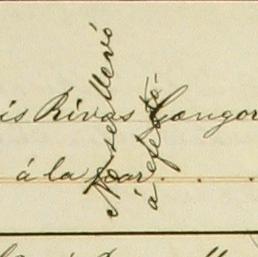 is Rivas Gangor
á la par . . .
No se llevó
á efectó